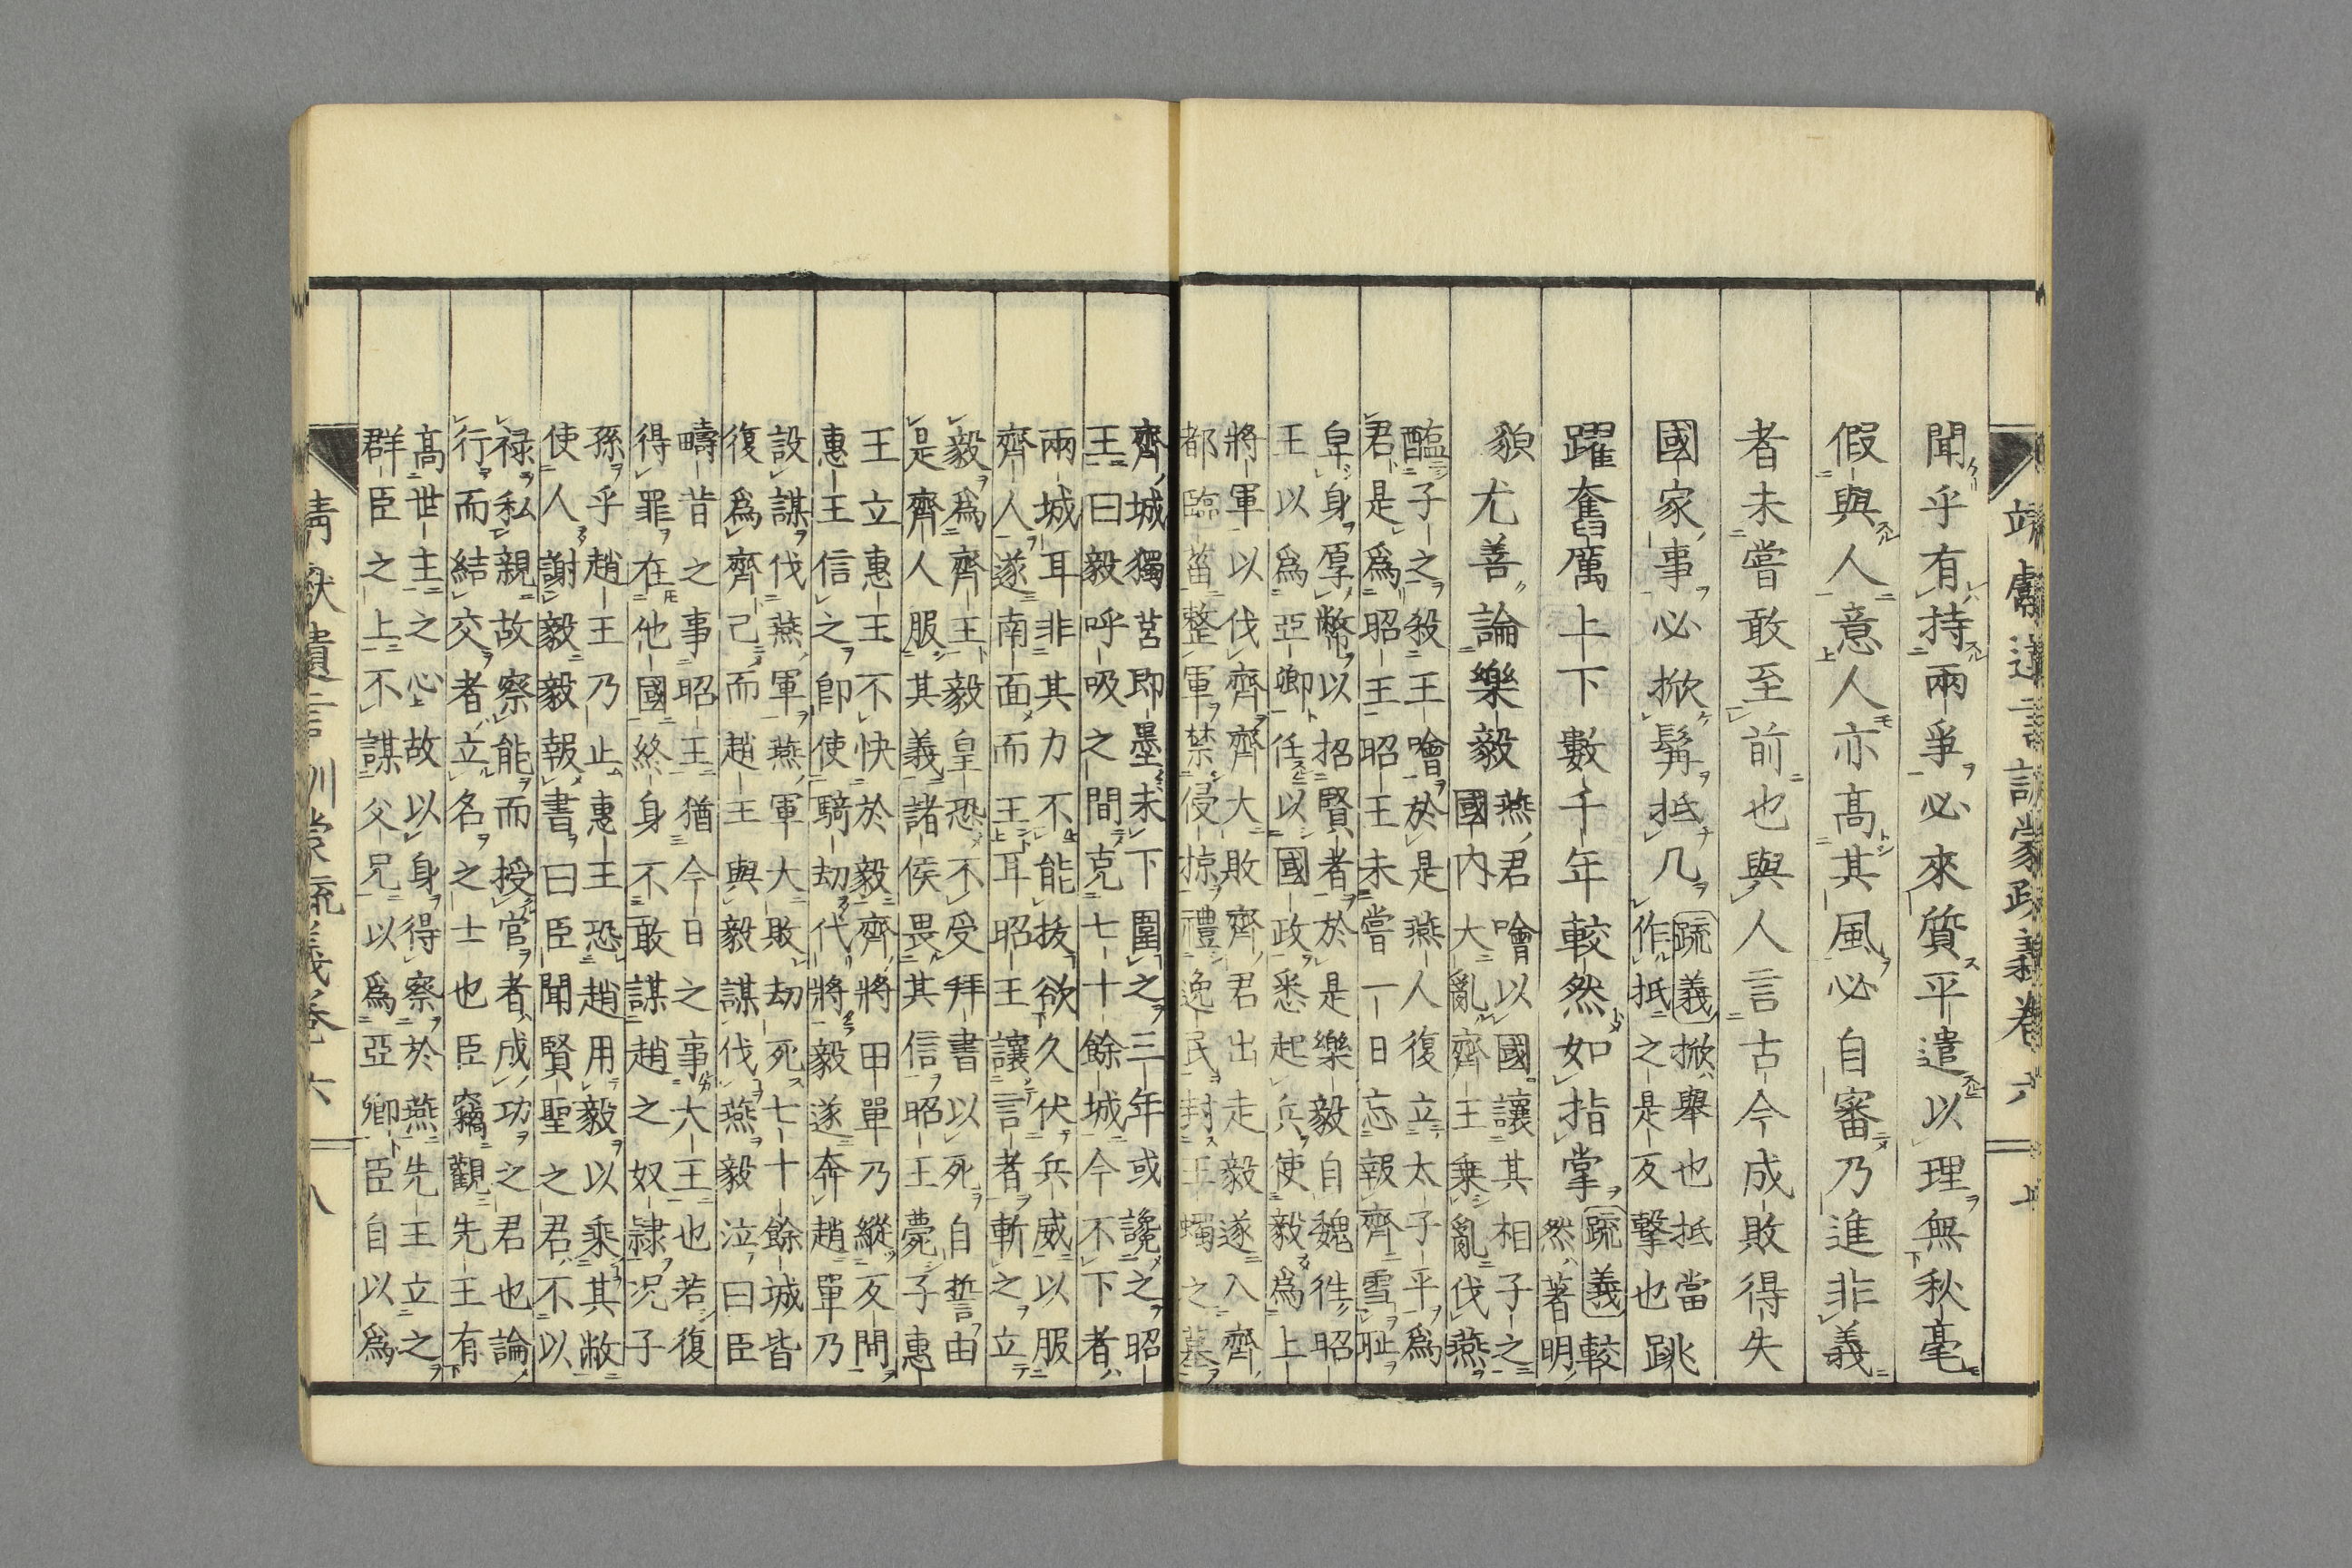 靖獻遺言訓蒙疏義卷六　七
聞乎有持兩爭必來質平遣以理無秋毫
假與人意人亦髙其風必自審乃進非義
者未嘗敢至前也與人言古今成敗得失
國家事必掀髯抵几
疏義掀舉也抵當
作抵之是反擊也
跳
躍奮厲上下數千年較然如指掌
疏義較
然著明
貌尤善論樂毅
燕君噲以國讓其相子之
國内大亂齊王乗亂伐燕
醢子之殺王噲於是燕人復立太子平爲
君是爲昭王昭王未嘗一日忘報齊雪耻
卑身厚幣以招賢者於是樂毅自魏徃昭
王以爲亞卿任以國政悉起兵使毅爲上
將軍以伐齊齊大敗齊君出走毅遂入齊
都臨菑整軍禁侵掠禮逸民封王蠋之墓
齊城獨莒即墨未下圍之三年或讒之昭
王曰毅呼吸之間克七十餘城今不下者
兩城耳非其力不能拔欲久伏兵威以服
齊人遂南面而王耳昭王讓言者斬之立
毅爲齊王毅皇恐不受拜書以死自誓由
是齊人服其義諸侯畏其信昭王薨子惠
王立惠王不快於毅齊將田單乃縱反間
惠王信之即使騎劫代將毅遂奔趙單乃
設謀伐燕軍燕軍大敗劫死七十餘城皆
復爲齊己而趙王與毅謀伐燕毅泣曰臣
疇昔之事昭王猶今日之事大王也若復
得罪在他國終身不敢謀趙之奴隷况子
孫乎趙王乃止惠王恐趙用毅以乘其敝
使人謝毅毅報書曰臣聞賢聖之君不以
禄私親故察能而授官者成功之君也論
行而結交者立名之士也臣竊觀先王有
髙世主之心故以身得察於燕先王立之
群臣之上不謀父兄以爲亞卿臣自以爲
靖獻遺言訓蒙疏義卷六　八